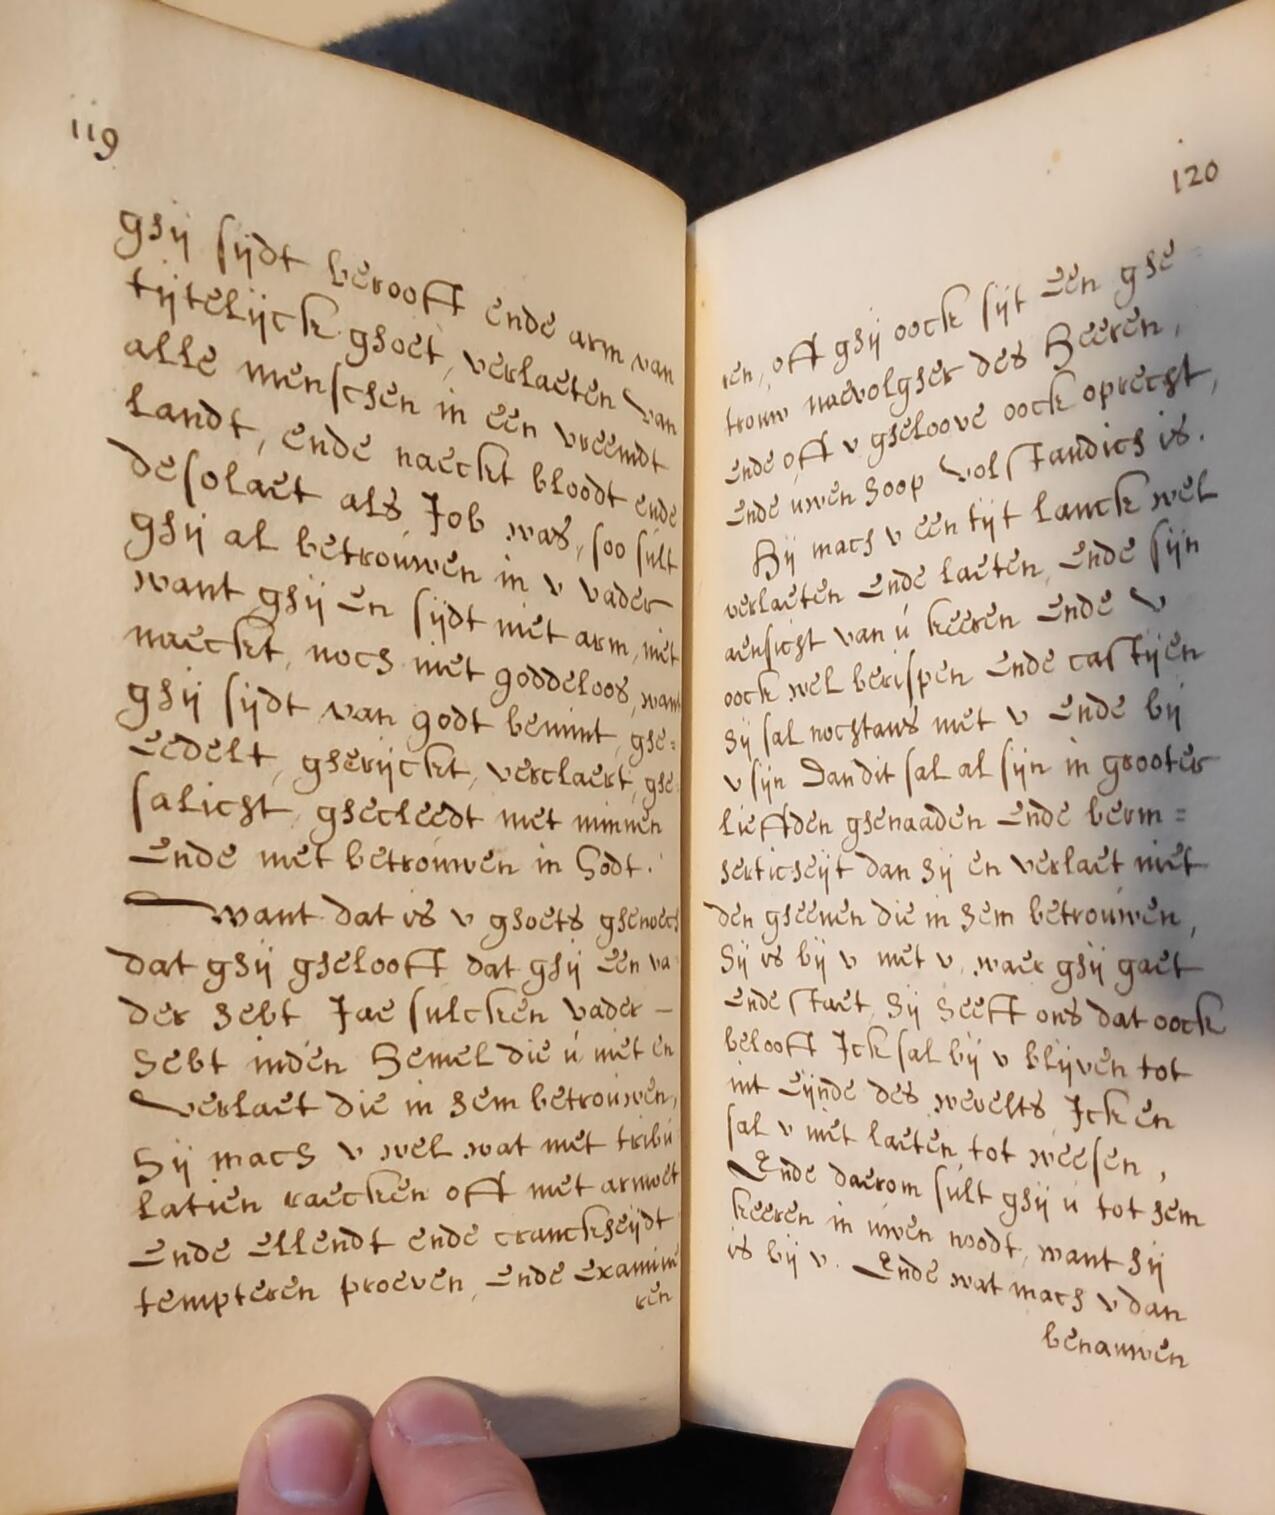 119
ghij sijdt berooft ende arm van
tijtelijck ghoet, verlaeten van
alle menschen in een vreemdt
landt, ende naeckt bloodt ende
desolaet als Job was, soo sult
ghij al betrouwen in v vader
want ghij en sijdt niet arm, niet
naeckt, noch niet goddeloos, want
ghij sijdt van godt bemint, ghe=
eedelt, gherijckt, verclaert, ghe
salicht, ghecleedt met minnen
ende met betrouwen in Godt.
want dat is v ghoets ghenoech
dat ghij ghelooft dat ghij een va
der hebt Jae sulcken vader –
hebt inden Hemel die u niet en
verlaet die in hem betrouwen,
Hij mach v wel wat met tribu
latien raecken oft met armoet
ende ellendt ende cranckheijdt
tempteren proeven, ende examine
ren
120
ren, oft ghij oock sijt een ghe
trouw naevolgher des Heeren,
ende oft v gheloove oock oprecht,
ende uwen hoop volstandich is.
Hij mach v een tijt lanck wel
verlaeten ende laeten, ende sijn
aensicht van u keeren ende v
oock wel berispen ende castijen
hij sal nochtans met v ende bij
v sijn Dan dit sal al sijn in grooter
lieffden ghenaaden ende berm=
herticheijt dan hij en verlaet niet
den gheenen die in hem betrouwen,
hij is bij v met v, waer ghij gaet
ende staet, hij heeft ons dat oock
belooft Ick sal bij v blijven tot
int eijnde des werelts Ick en
sal v niet laeten tot weesen,
Ende daerom sult ghij u tot hem
keeren in uwen noodt, want hij
is bij v. Ende wat mach v dan
benauwen